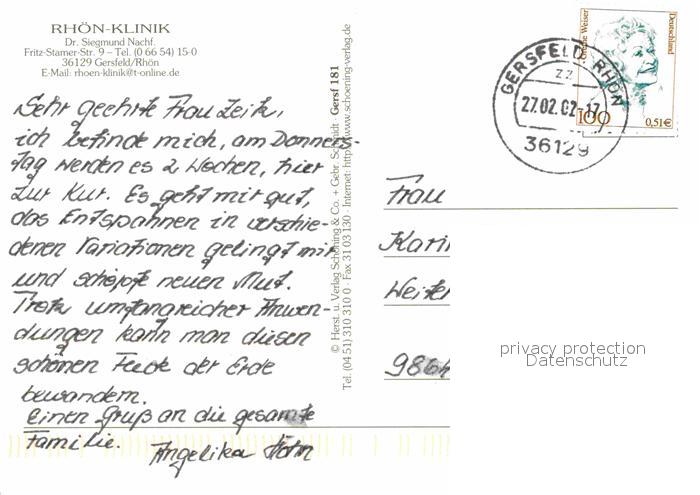 RHÖN-KLINIK
Dr. Siegmund Nachf.
Fritz-Stamer-Str. 9 – Tel. (0 66 54) 15-0
36129 Gersfeld/Rhön
E-Mail: rhoen-klinik@t-online.de
Sehr geehrte Frau Zeitz,
ich befinde mich, am Donners-
tag werden es 2 Wochen, hier
zur Kur. Es geht mir gut,
das Entspannen in verschie-
denen Variationen gelingt mir
und schöpfe neuen Mut.
Trotz umfangreicher Anwen-
dungen kann man diesen
schönen Fleck der Erde
bewandern.
Einen Gruß an die gesamte
Familie.
Angelika Höhn
© Herst. u. Verlag Schöning & Co. + Gebr. Schmidt · Gersf 181
Tel. (04 51) 310 310 0 · Fax 31 03 130 · Internet: http://www.schoening-verlag.de
GERSFELD, RHÖN
zz
27.02.02-17
36129
Deutschland
100
0,51€
Frau
Karin
privacy protection
Datenschutz